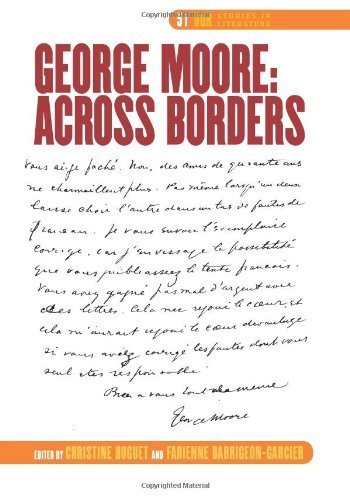 Copyrighted Material
STUDIES IN
LITERATURE
GEORGE MOORE:
ACROSS BORDERS
Vous ai-je faché. Non, des amis de quarante ans
ne chamaillent plus. Pas même lorsqu'un deux
laisse choir l'autre dans un tas de fautes de
Je vous envoie l'exemplaire
corrigé, car j'envisage la possibilité
que vous publieassiez le texte francais.
Vous avez gagné pas mal d'argent avec
des lettres. Cela me rejouit le cœur, et
cela m'aurait rejoui le cœur davantage
si vous aviez corrigé les fautes dont vous
seul etes responsable.
Bien a vous tout de meme
Moore
EDITED BY CHRISTINE HUGUET AND FABIENNE DABRIGEON-GARCIER
Copyrighted Material